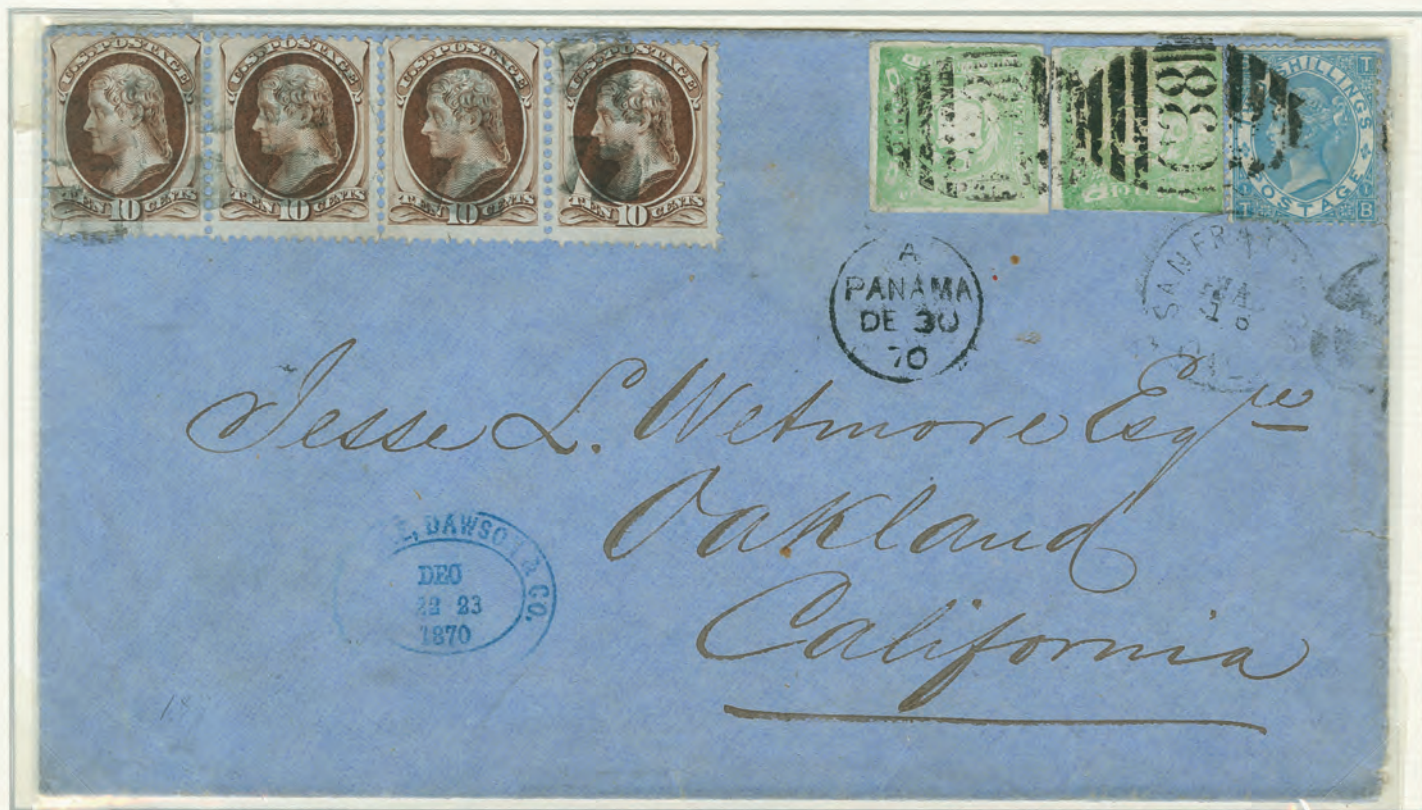 U.S. POSTAGE
TEN 10 CENTS
U.S. POSTAGE
TEN 10 CENTS
U.S. POSTAGE
TEN 10 CENTS
U.S. POSTAGE
TEN 10 CENTS
C38
SHILLINGS
POSTAGE
T
B
T
B
A
PANAMA
DE 30
70
SAN FRAN
CAL
Jesse L. Wetmore Esqre
Oakland
California
DAWSON & CO.
DEC
22 23
1870
18